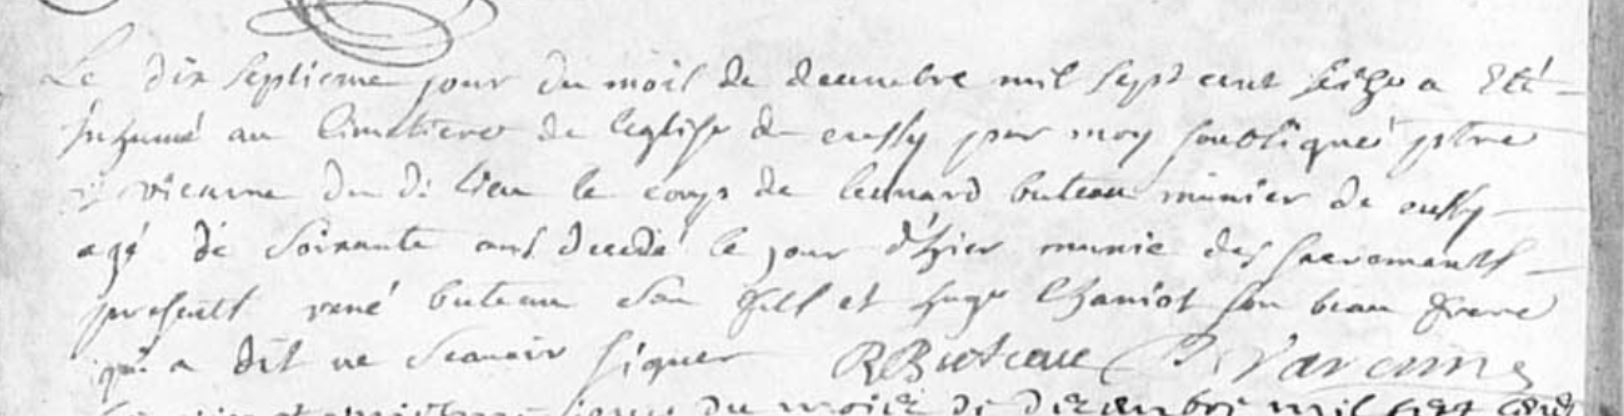 Le dix septieme jour du mois de decembre mil sept cent seize a Eté
Inhumé au Cimetiere de leglise de cussy par moy soubsigné pstre
vicaire du di lieu le corps de leonard buteau munier de cussy
agé de soixante ans decedé le jour d'hier munie des sacremants
presents rené buteau son fils et hugu Chaniot son beau frere
qui a dit ne scauoir signer RButeau Varenne
du mois de dezembre mil sept cent